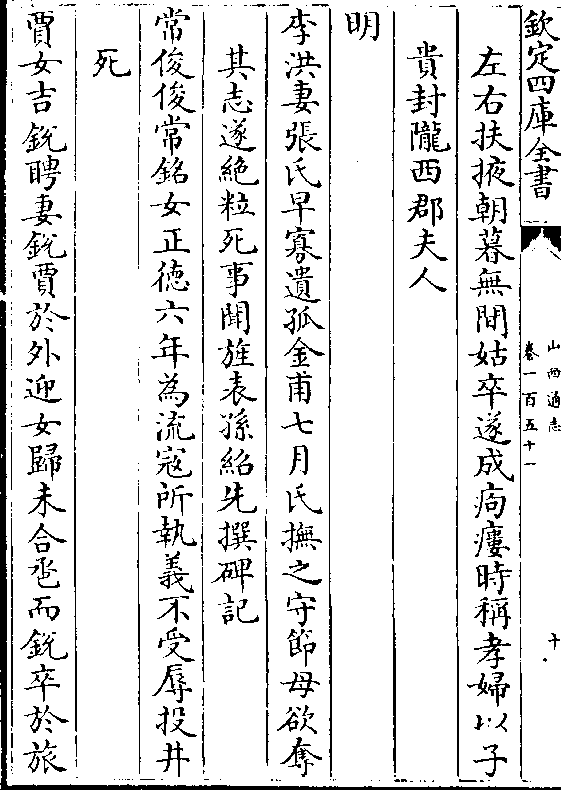 欽定四庫全書
山西通志
卷一百五十一
十
左右扶掖朝暮無間姑卒遂成痀瘻時稱孝婦以子
貴封隴西郡夫人
明
李洪妻張氏早寡遺孤金甫七月氏撫之守節母欲奪
其志遂絶粒死事聞旌表孫紹先撰碑記
常俊俊常銘女正徳六年為流寇所執義不受辱投井
死
賈女吉鋭聘妻鋭賈於外迎女歸未合卺而鋭卒於旅